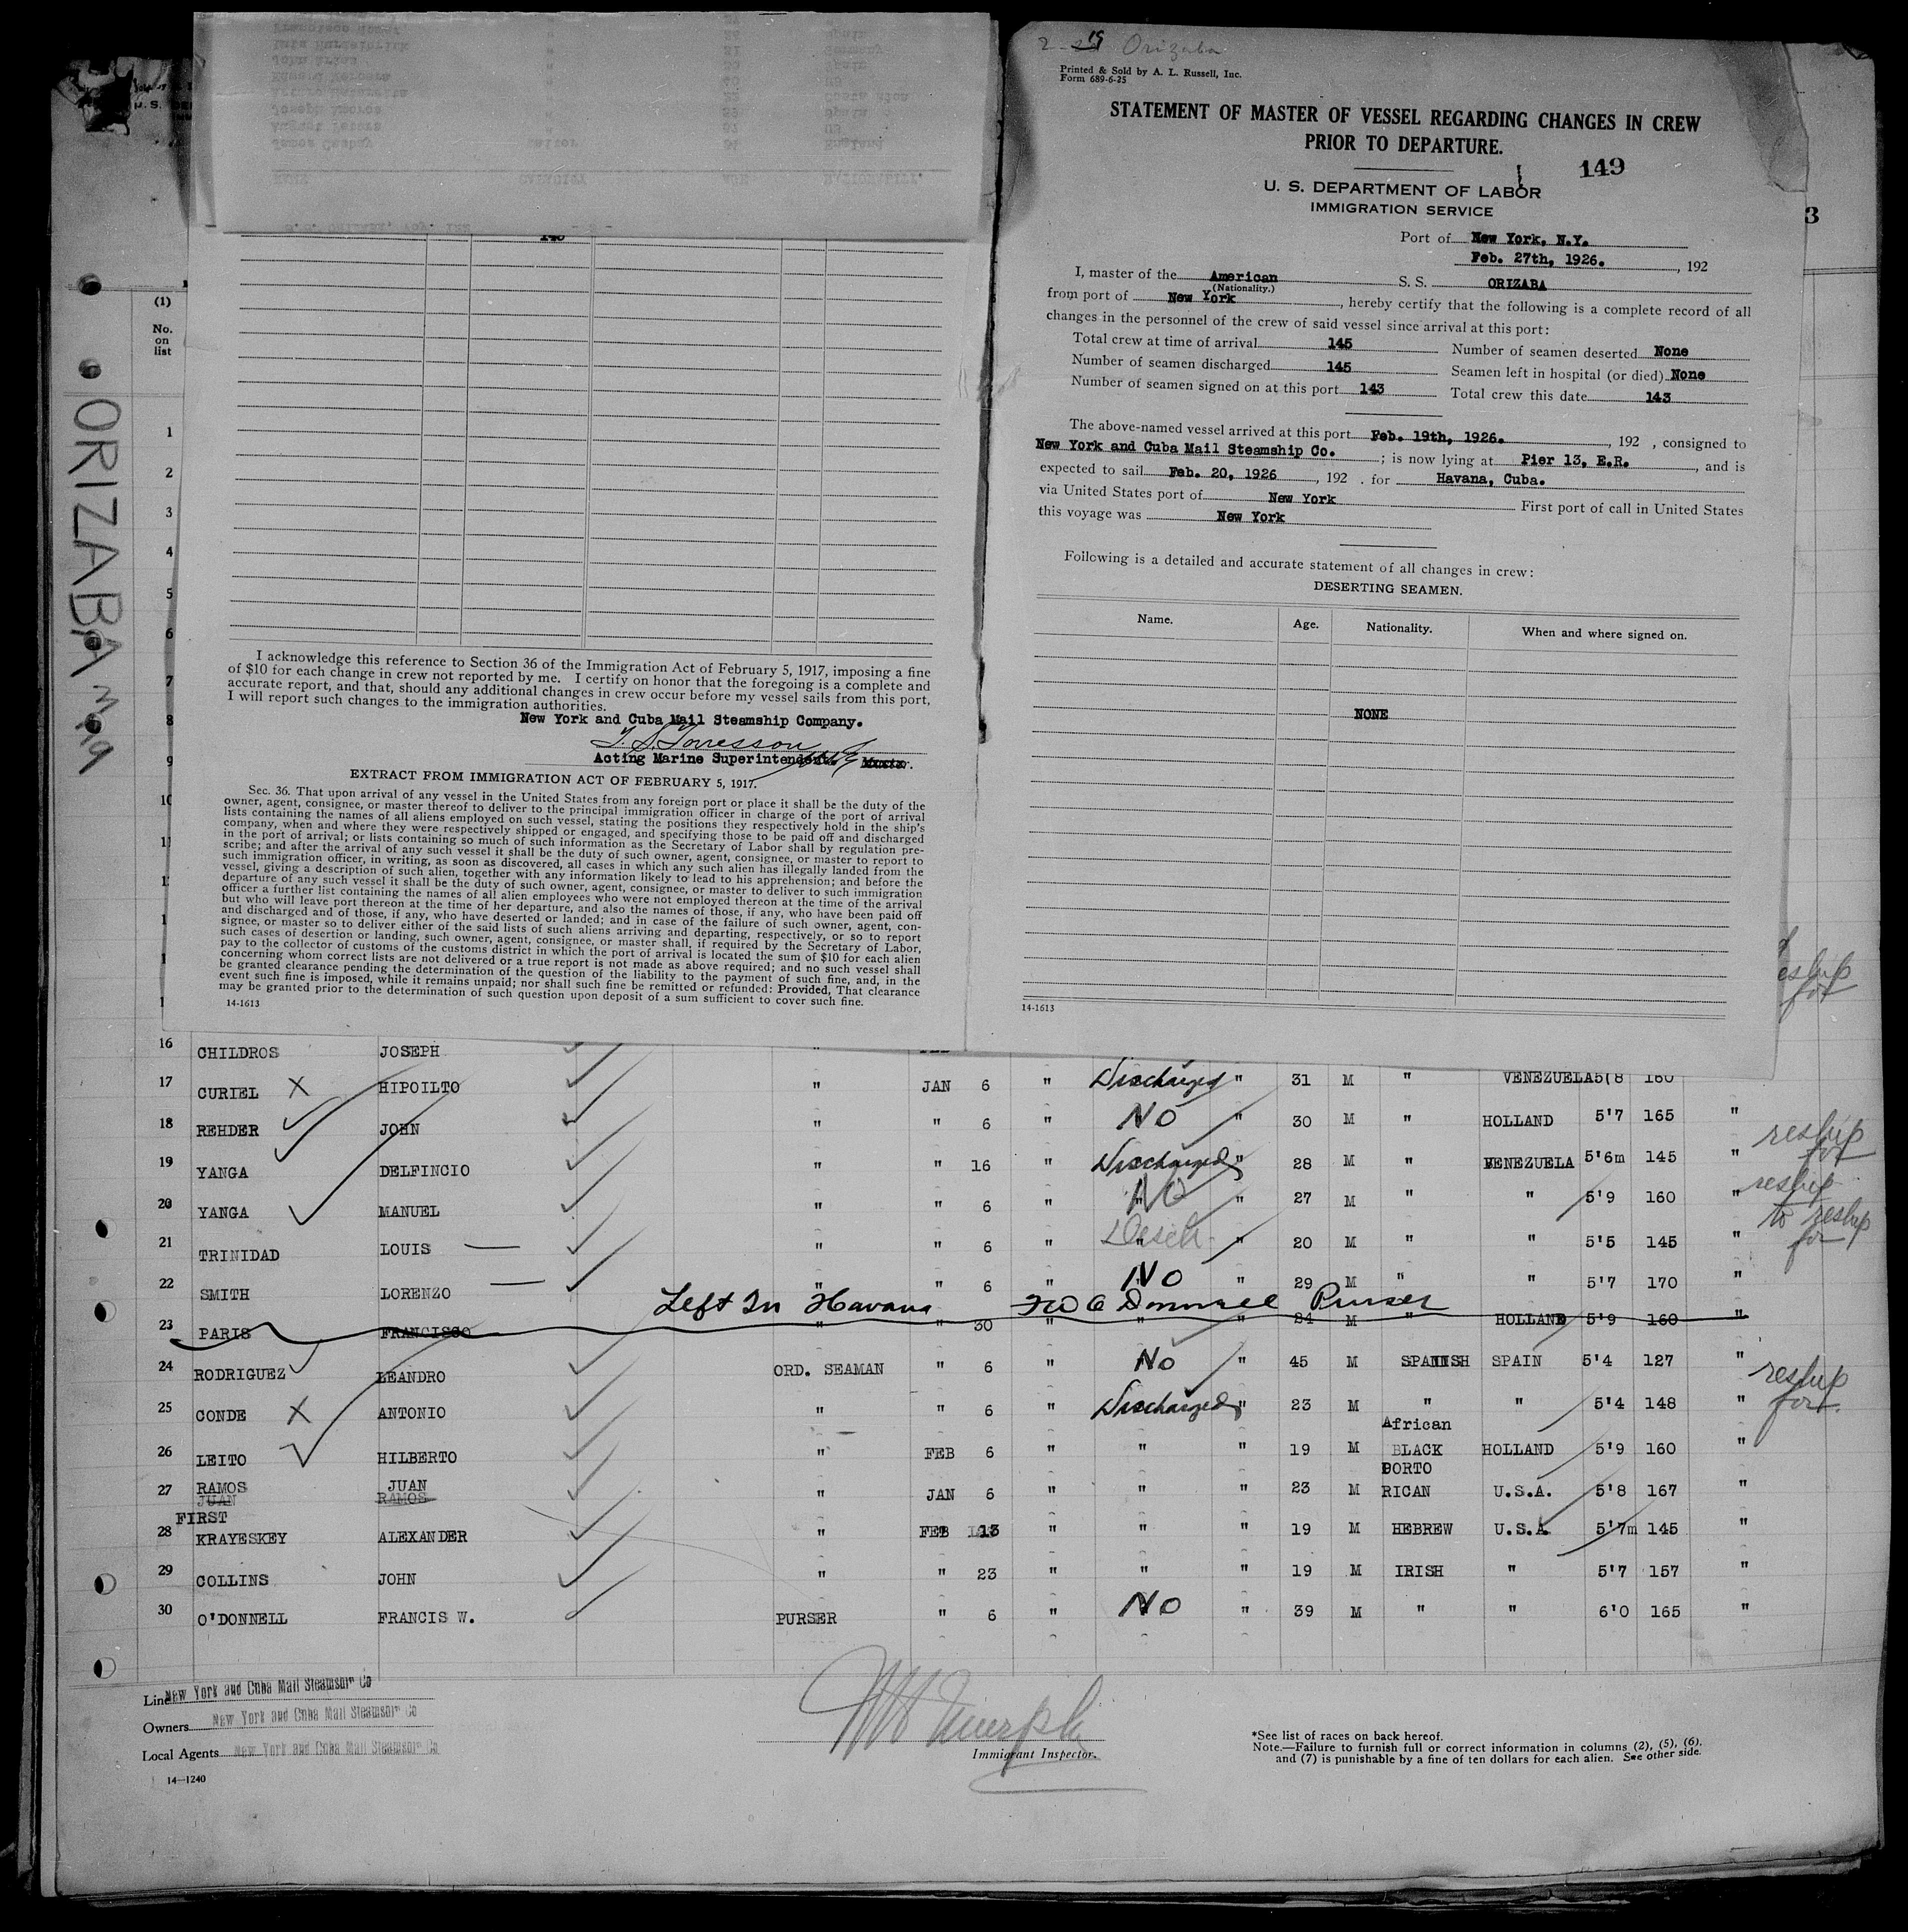 2-19 Orizaba
Printed & Sold by A. L. Russell, Inc.
Form 689-6-25
STATEMENT OF MASTER OF VESSEL REGARDING CHANGES IN CREW
PRIOR TO DEPARTURE.
149
U. S. DEPARTMENT OF LABOR
IMMIGRATION SERVICE
Port of New York, N.Y.
Feb. 27th, 1926. , 192
I, master of the American S. S. ORIZABA
(Nationality.)
from port of New York , hereby certify that the following is a complete record of all
changes in the personnel of the crew of said vessel since arrival at this port:
Total crew at time of arrival 145 Number of seamen deserted None
Number of seamen discharged 145 Seamen left in hospital (or died) None
Number of seamen signed on at this port 143 Total crew this date 143
The above-named vessel arrived at this port Feb. 19th, 1926. , 192 , consigned to
New York and Cuba Mail Steamship Co. ; is now lying at Pier 13, E.R. , and is
expected to sail Feb. 20, 1926 , 192 . for Havana, Cuba.
via United States port of New York First port of call in United States
this voyage was New York
Following is a detailed and accurate statement of all changes in crew:
DESERTING SEAMEN.
Name. Age. Nationality. When and where signed on.
NONE
14-1613
I acknowledge this reference to Section 36 of the Immigration Act of February 5, 1917, imposing a fine
of $10 for each change in crew not reported by me. I certify on honor that the foregoing is a complete and
accurate report, and that, should any additional changes in crew occur before my vessel sails from this port,
I will report such changes to the immigration authorities.
New York and Cuba Mail Steamship Company.
T. S. Torresson
Acting Marine Superintendent. Master.
EXTRACT FROM IMMIGRATION ACT OF FEBRUARY 5, 1917.
Sec. 36. That upon arrival of any vessel in the United States from any foreign port or place it shall be the duty of the
owner, agent, consignee, or master thereof to deliver to the principal immigration officer in charge of the port of arrival
lists containing the names of all aliens employed on such vessel, stating the positions they respectively hold in the ship's
company, when and where they were respectively shipped or engaged, and specifying those to be paid off and discharged
in the port of arrival; or lists containing so much of such information as the Secretary of Labor shall by regulation pre-
scribe; and after the arrival of any such vessel it shall be the duty of such owner, agent, consignee, or master to report to
such immigration officer, in writing, as soon as discovered, all cases in which any such alien has illegally landed from the
vessel, giving a description of such alien, together with any information likely to lead to his apprehension; and before the
departure of any such vessel it shall be the duty of such owner, agent, consignee, or master to deliver to such immigration
officer a further list containing the names of all alien employees who were not employed thereon at the time of the arrival
but who will leave port thereon at the time of her departure, and also the names of those, if any, who have been paid off
and discharged and of those, if any, who have deserted or landed; and in case of the failure of such owner, agent, con-
signee, or master so to deliver either of the said lists of such aliens arriving and departing, respectively, or so to report
such cases of desertion or landing, such owner, agent, consignee, or master shall, if required by the Secretary of Labor,
pay to the collector of customs of the customs district in which the port of arrival is located the sum of $10 for each alien
concerning whom correct lists are not delivered or a true report is not made as above required; and no such vessel shall
be granted clearance pending the determination of the question of the liability to the payment of such fine, and, in the
event such fine is imposed, while it remains unpaid; nor shall such fine be remitted or refunded: Provided, That clearance
may be granted prior to the determination of such question upon deposit of a sum sufficient to cover such fine.
14-1613
ORIZABA
3
(1)
No.
on
list
1
2
3
4
5
6
7
8
9
10
16 CHILDROS JOSEPH
17 CURIEL X HIPOILTO " JAN 6 " Discharged " 31 M " VENEZUELA 5'8 160
18 REHDER JOHN " " 6 " NO " 30 M " HOLLAND 5'7 165 "
reship for
19 YANGA DELFINCIO " " 16 " Discharged " 28 M " VENEZUELA 5'6m 145 "
20 YANGA MANUEL " " 6 " NO " 27 M " " 5'9 160 " reship
to reship for
21 TRINIDAD LOUIS " " 6 " Disch. " 20 M " " 5'5 145 "
22 SMITH LORENZO " " 6 " NO " 29 M " " 5'7 170 "
Left In Havana FW O'Donnell Purser
23 PARIS FRANCISCO " " 30 " " " 24 M " HOLLAND 5'9 160 "
24 RODRIGUEZ LEANDRO ORD. SEAMAN " 6 " No " 45 M SPANISH SPAIN 5'4 127 "
reship for
25 CONDE X ANTONIO " " 6 " Discharged " 23 M " " 5'4 148 "
African
26 LEITO HILBERTO " FEB 6 " " " 19 M BLACK HOLLAND 5'9 160 "
PORTO
27 RAMOS JUAN " JAN 6 " " " 23 M RICAN U.S.A. 5'8 167 "
JUAN RAMOS
FIRST
28 KRAYESKEY ALEXANDER " FEB 13 " " " 19 M HEBREW U.S.A 5'7m 145 "
29 COLLINS JOHN " " 23 " " " 19 M IRISH " 5'7 157 "
30 O'DONNELL FRANCIS W. PURSER " 6 " NO " 39 M " " 6'0 165 "
Line New York and Cuba Mail Steamship Co
Owners New York and Cuba Mail Steamship Co
Local Agents New York and Cuba Mail Steamship Co
14-1240
Immigrant Inspector.
*See list of races on back hereof.
Note.—Failure to furnish full or correct information in columns (2), (5), (6),
and (7) is punishable by a fine of ten dollars for each alien. See other side.